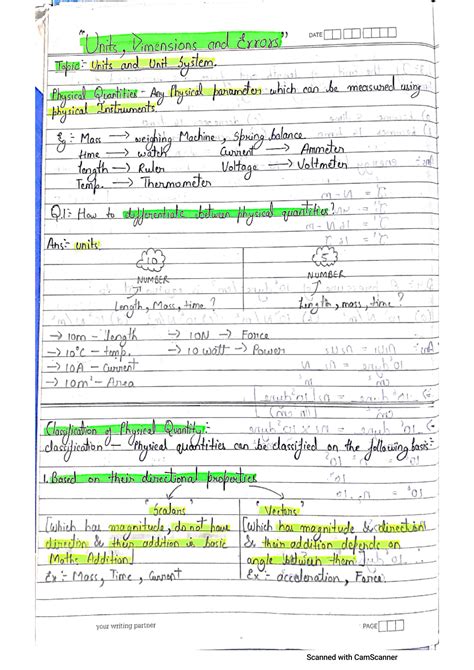 "Units, Dimensions and Errors"
DATE
Topic:- Units and Unit System.
Physical Quantities - Any Physical parameter which can be measured using
physical Instruments.
Eg:- Mass → weighing Machine, Spring balance.
time → watch Current → Ammeter
length → Ruler Voltage → Voltmeter
Temp. → Thermometer
Q1:- How to differentiate between physical quantities?
Ans:- units.
10 5
NUMBER NUMBER
Length, Mass, time? Length, mass, time?
→ 10m - length → 10N → Force
→ 10°C - temp. → 10 watt → Power
→ 10A - Current
→ 10m² - Area
Classification of Physical Quantity:-
classification - Physical quantities can be classified on the following basis:-
1. Based on their directional properties
"Scalars" "Vectors"
[Which has magnitude, do not have [Which has magnitude & direction
direction & their addition is basic & their addition depends on
Maths Addition] angle between them]
Ex:- Mass, Time, Current Ex:- acceleration, Force.
your writing partner PAGE
Scanned with CamScanner